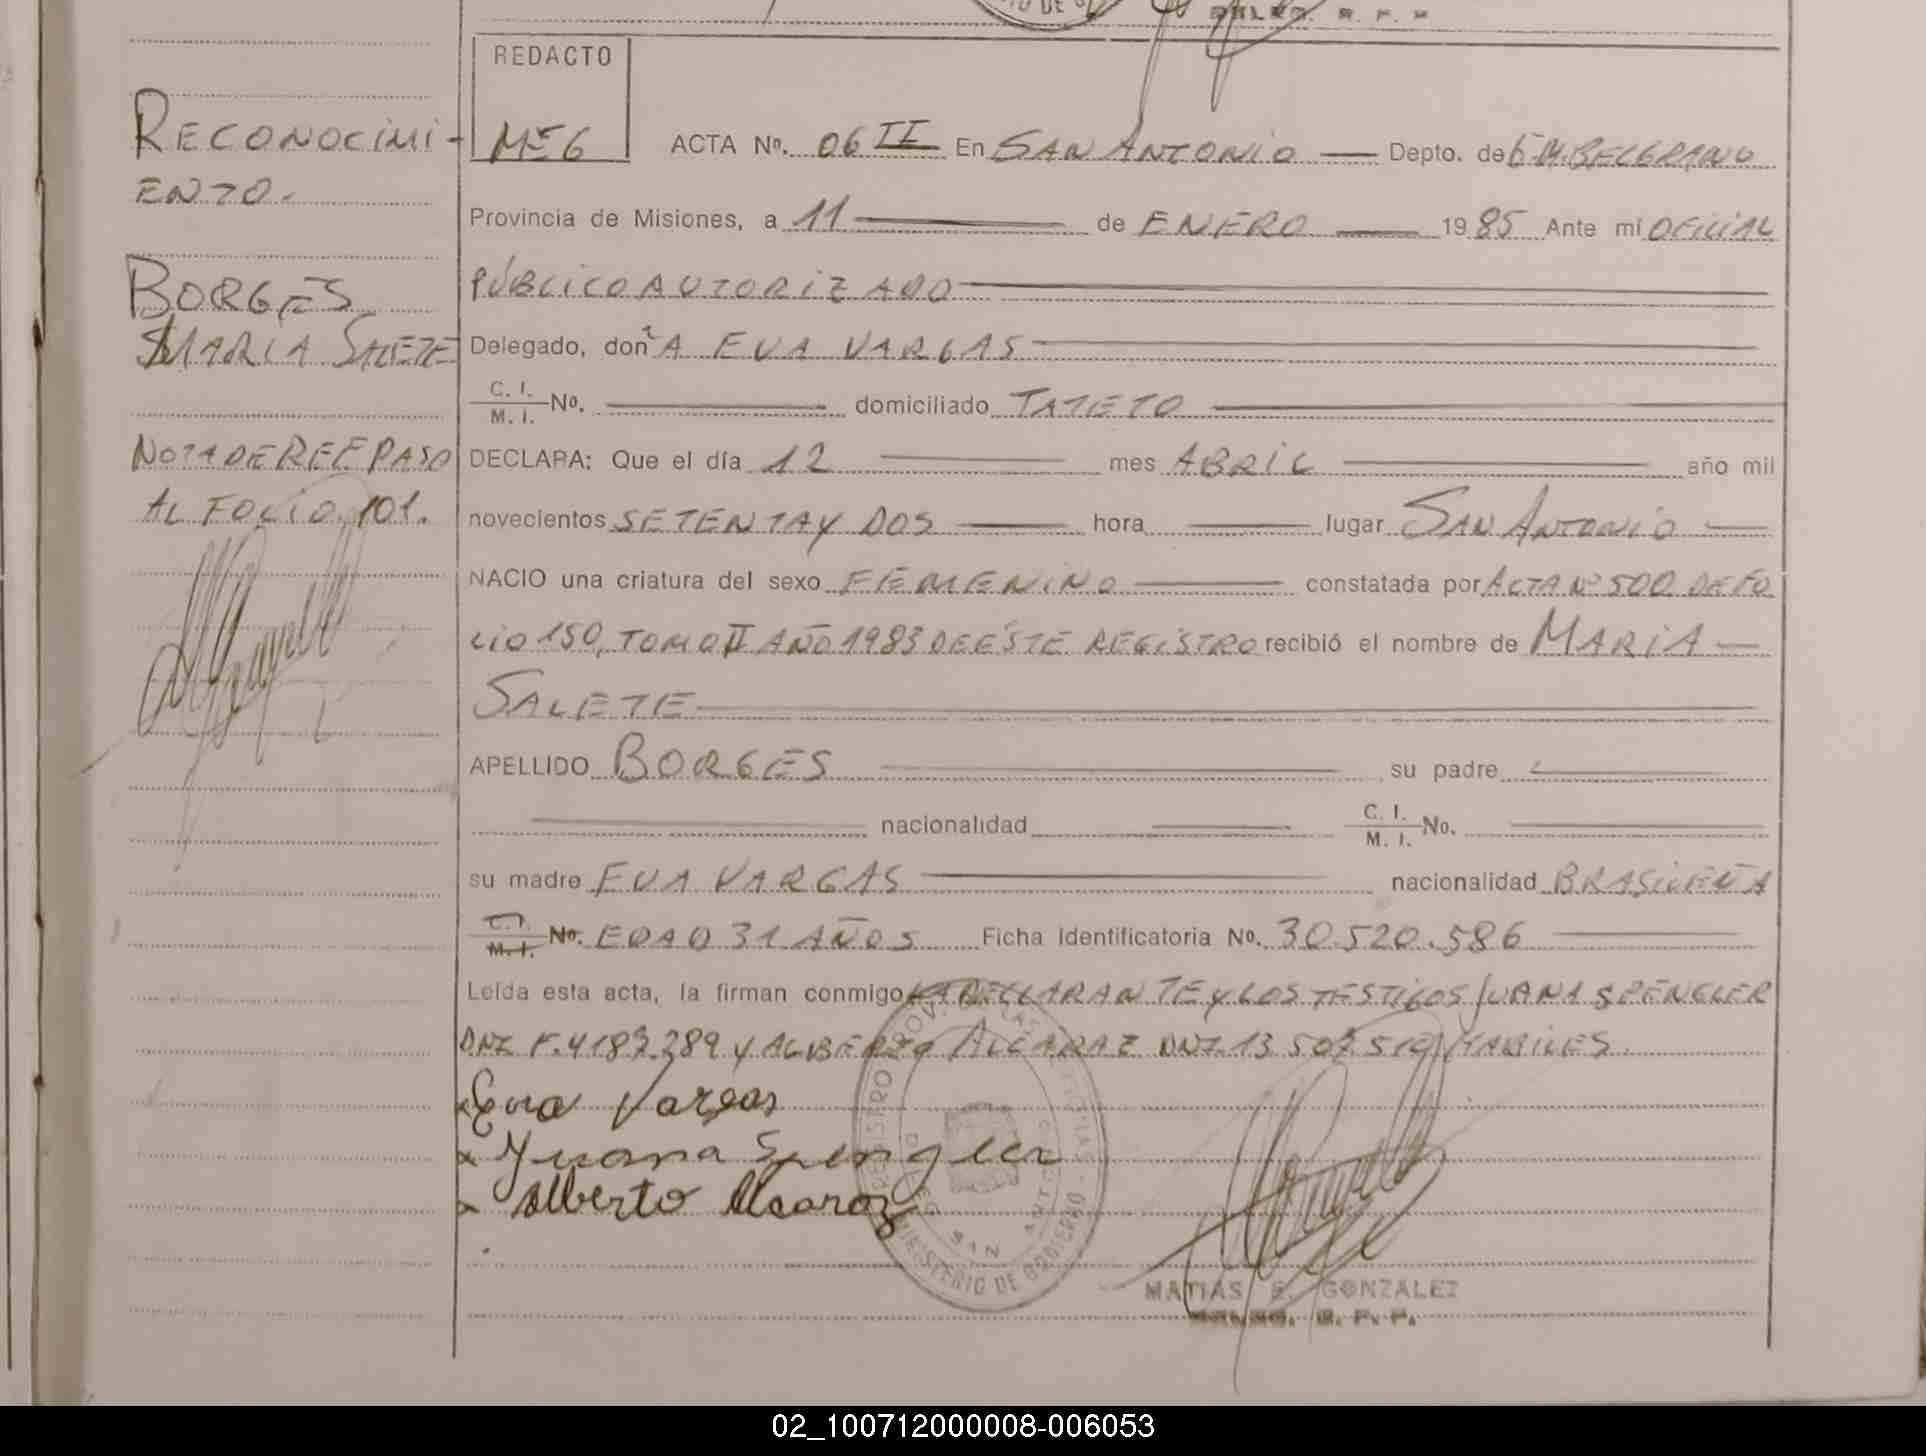 REDACTO
MEG
RECONOCIMI-
ENTO.
BORGES
MARIA SALETE
NOTA DE REF PASO
AL FOLIO 101.
ACTA Nº. 06 II En SAN ANTONIO — Depto. de G.M.BELGRANO
Provincia de Misiones, a 11 — de ENERO — 1985 Ante mí OFICIAL
PÚBLICO AUTORIZADO
Delegado, doñA EVA VARGAS
C. I.
M. I. No. — domiciliado TATETO
DECLARA: Que el día 12 — mes ABRIL — año mil
novecientos SETENTA Y DOS — hora — lugar SAN ANTONIO —
NACIO una criatura del sexo FEMENINO — constatada por ACTA Nº 500 DE FO
LIO 150, TOMO II AÑO 1983 DE ÉSTE REGISTRO recibió el nombre de MARIA —
SALETE
APELLIDO BORGES — su padre —
— nacionalidad — C. I.
M. I. No. —
su madre EVA VARGAS — nacionalidad BRASILEÑA
C. I.
M. I. No. EDAD 31 AÑOS Ficha Identificatoria No. 30.520.586 —
Leída esta acta, la firman conmigo LA DECLARANTE Y LOS TESTIGOS JUANA SPENGLER
DNI F.4.189.289 Y ALBERTO ALCARAZ DNI.13.507. HABILES.
Eva Vargas
x Juana Spengler
x Alberto Alcaraz
REGISTRO PROV. DE LAS PERSONAS
MINISTERIO DE GOBIERNO
SAN ANTONIO
MATIAS E. GONZALEZ
DELEG. R. P. P.
02_100712000008-006053